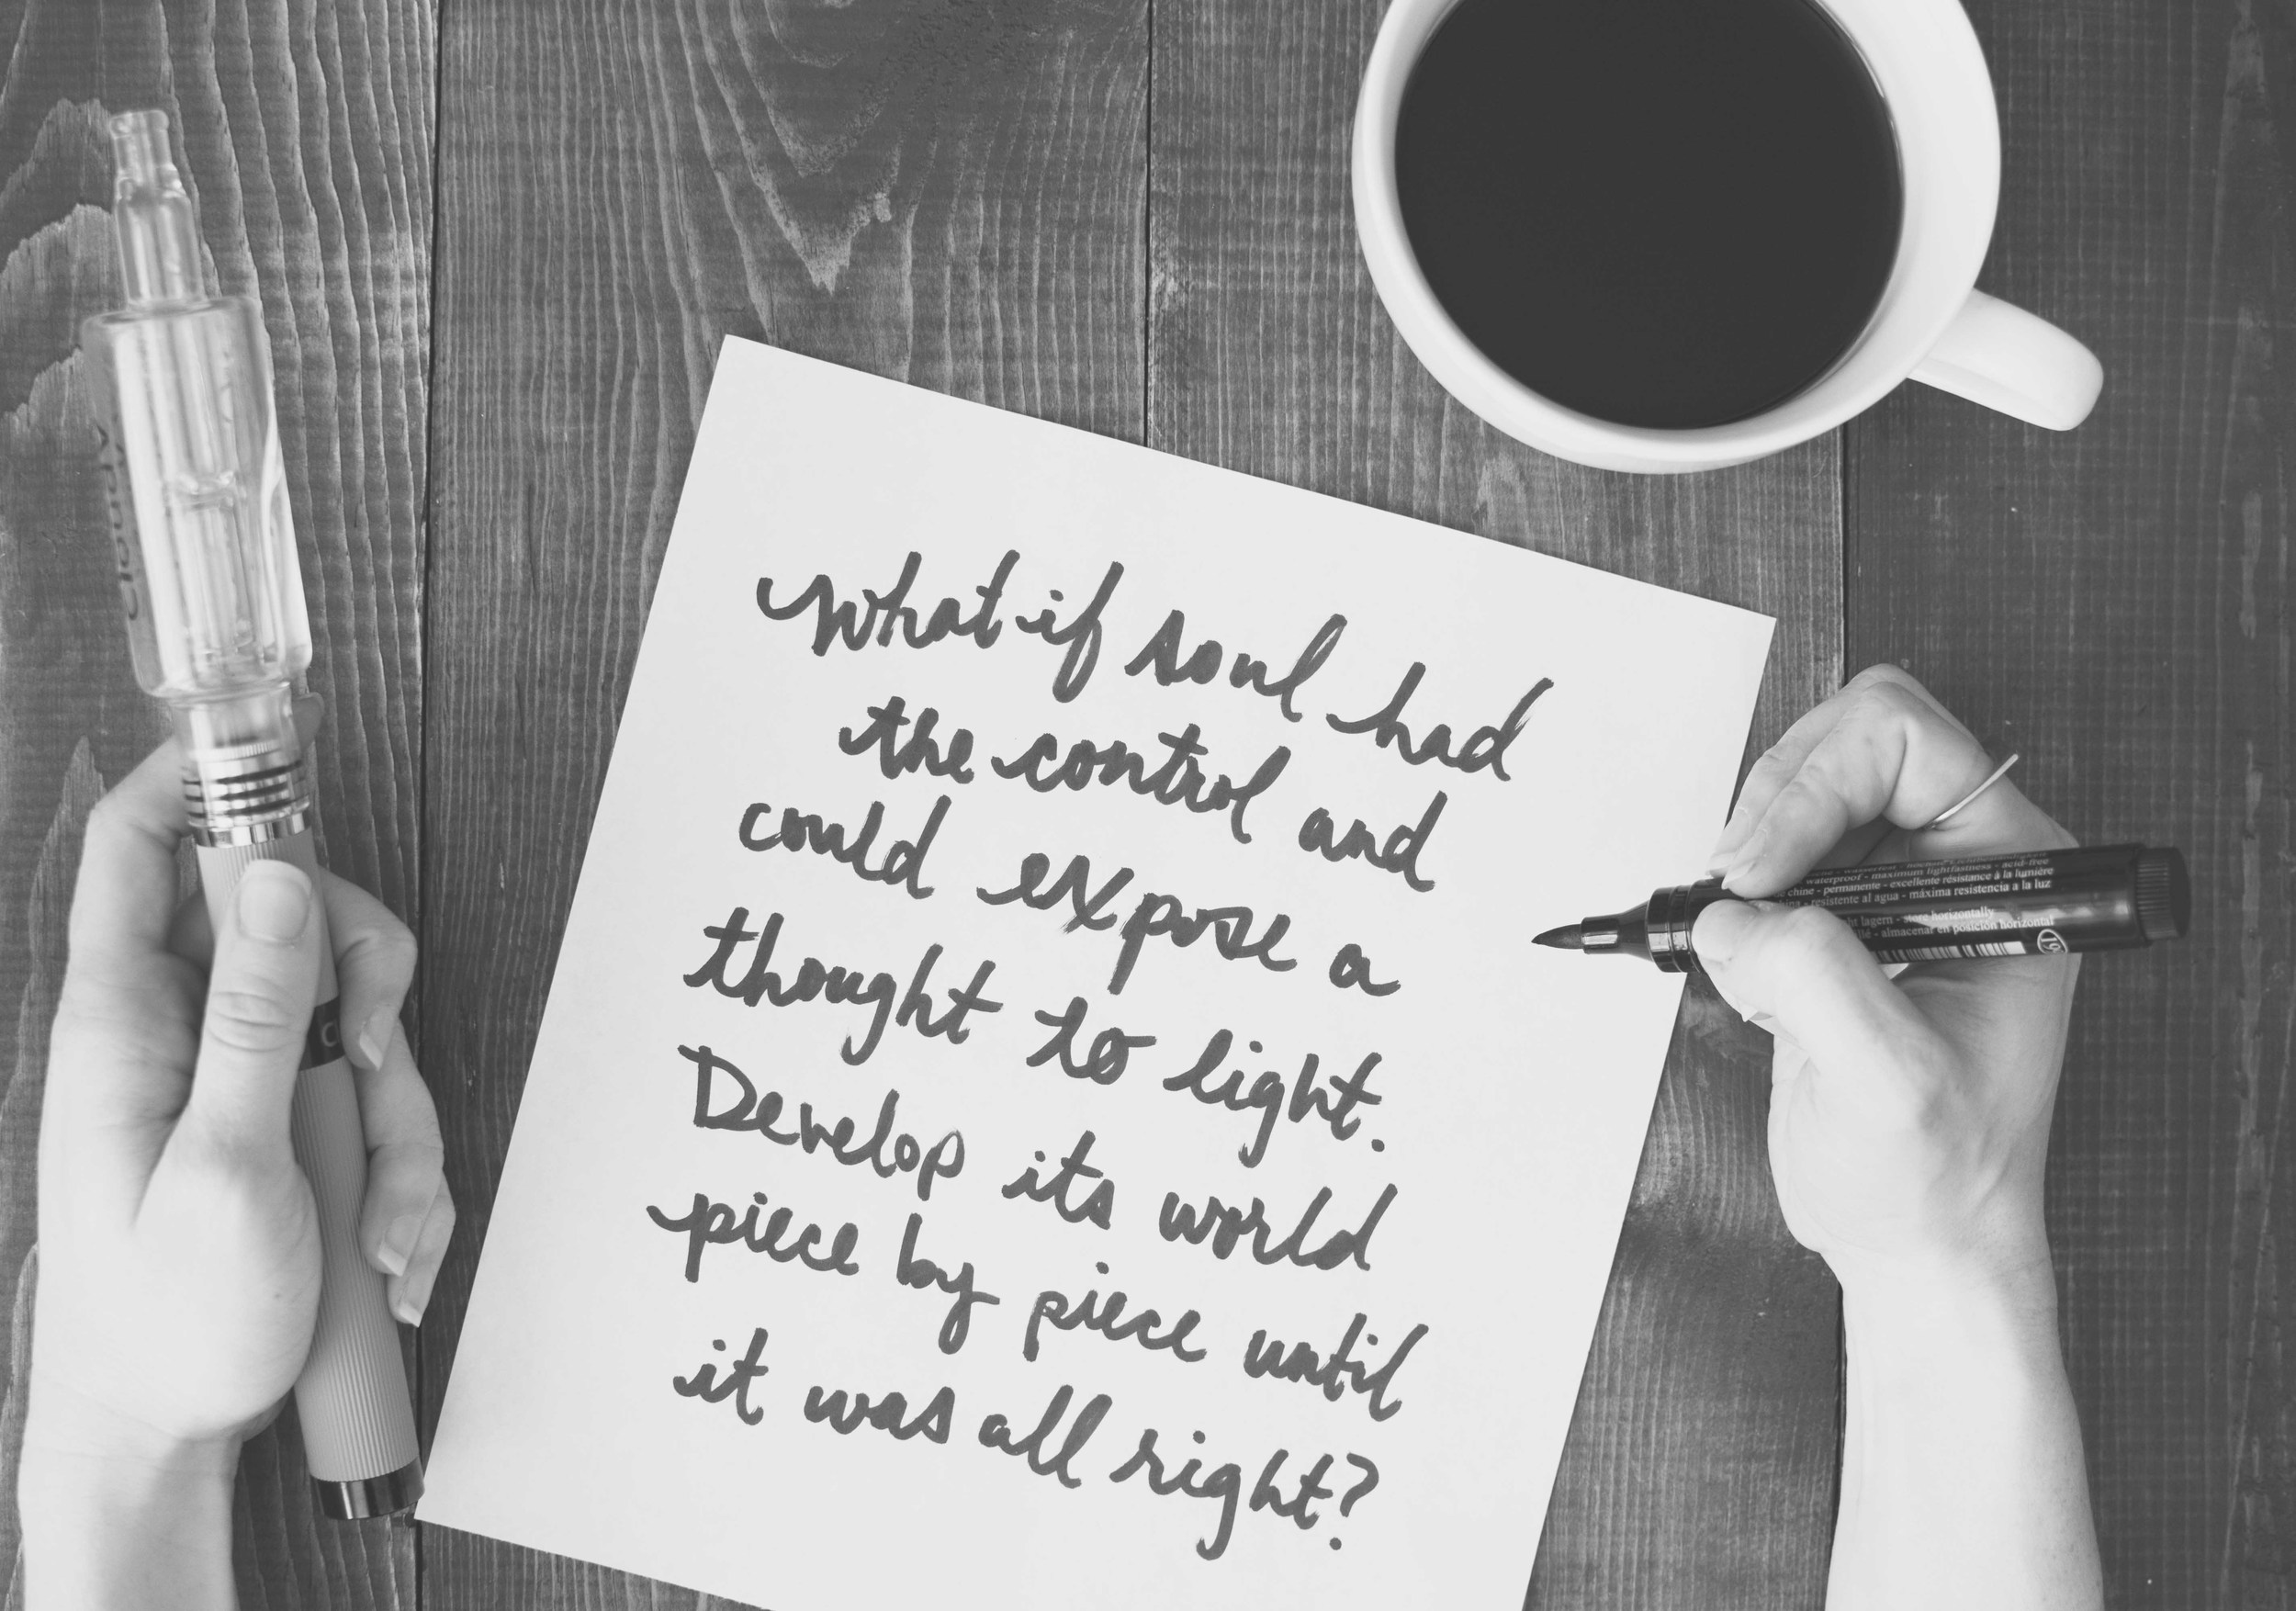 What if soul had
the control and
could expose a
thought to light.
Develop its world
piece by piece until
it was all right?
waterproof - maximum lightfastness - acid-free
chine - permanente - excellente résistance à la lumière
resistente al agua - máxima resistencia a la luz
lagern - store horizontally
almacenar en posición horizontal